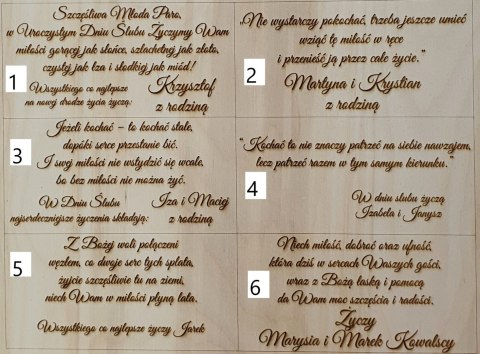 Szczęśliwa Młoda Paro,
w Uroczystym Dniu Ślubu Życzymy Wam
miłości gorącej jak słońce, szlachetnej jak złoto,
czystej jak łza i słodkiej jak miód!
1
Wszystkiego co najlepsze
na nowej drodze życia życzą:
Krzysztof
z rodziną
„Nie wystarczy pokochać, trzeba jeszcze umieć
wziąć tę miłość w ręce
i przenieść ją przez całe życie.”
2
Martyna i Krystian
z rodziną
Jeżeli kochać – to kochać stale,
dopóki serce przestanie bić.
3
I swej miłości nie wstydzić się wcale,
bo bez miłości nie można żyć.
W Dniu Ślubu
najserdeczniejsze życzenia składają:
Iza i Maciej
z rodziną
“Kochać to nie znaczy patrzeć na siebie nawzajem,
lecz patrzeć razem w tym samym kierunku.”
4
W dniu ślubu życzą
Izabela i Janysz
Z Bożej woli połączeni
węzłem, co dwoje serc tych splata,
5
żyjcie szczęśliwie tu na ziemi,
niech Wam w miłości płyną lata.
Wszystkiego co najlepsze życzy Jarek
Niech miłość, dobroć oraz ufność,
która dziś w sercach Waszych gości,
6
wraz z Bożą łaską i pomocą
da Wam moc szczęścia i radości.
Życzy
Marysia i Marek Kowalscy